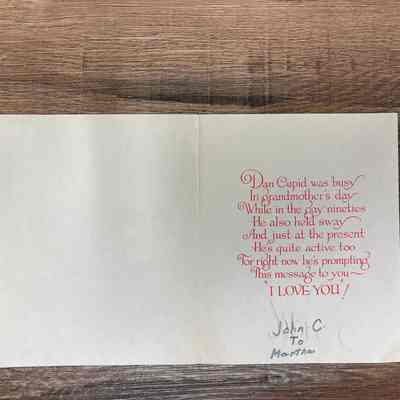 Dan Cupid was busy
In grandmother's day
While in the gay nineties
He also held sway
And just at the present
He's quite active too
For right now he's prompting
This message to you —
"I LOVE YOU"!
John C.
To
Martha